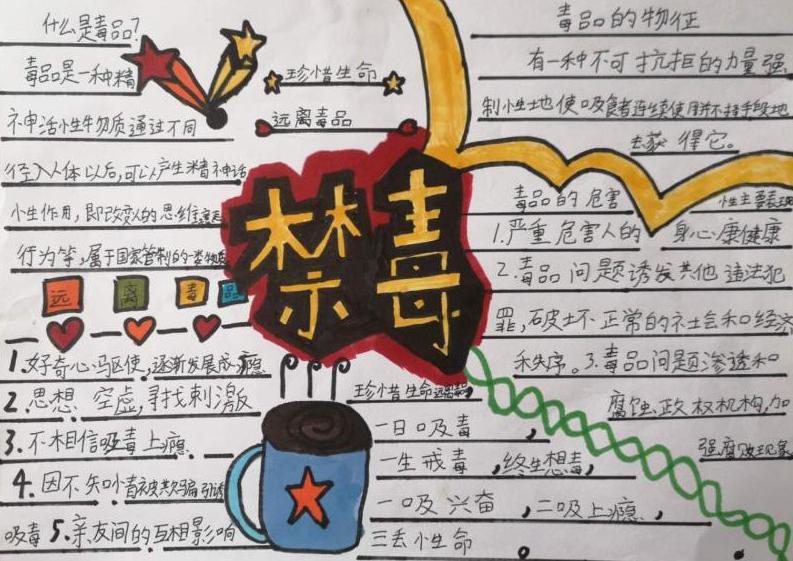 什么是毒品?
毒品是一种精
神活性物质通过不同
径入人体以后,可以产生精神活
性作用,即改变人的思维意识
行为等,属于国家管制的一类物质
远 离 毒 品
1.好奇心驱使,逐渐发展成瘾
2.思想空虚,寻找刺激
3.不相信吸毒上瘾.
4.因不知小毒被欺骗引诱
吸毒5.亲友间的互相影响
珍惜生命
远离毒品
禁毒
珍惜生命远离毒品
一日吸毒,
一生戒毒,终生想毒,
一吸兴奋,二吸上瘾,
三丢小生命。
毒品的物征
有一种不可抗拒的力量强
制性地使吸食者连续使用并不择手段地
去获得它。
毒品的危害 性主要表现
1.严重危害人的身心康健康
2.毒品问题诱发其他违法犯
罪,破坏正常的社会和经济
和秩序。3.毒品问题渗透和
腐蚀政权机构,加
强腐败现象